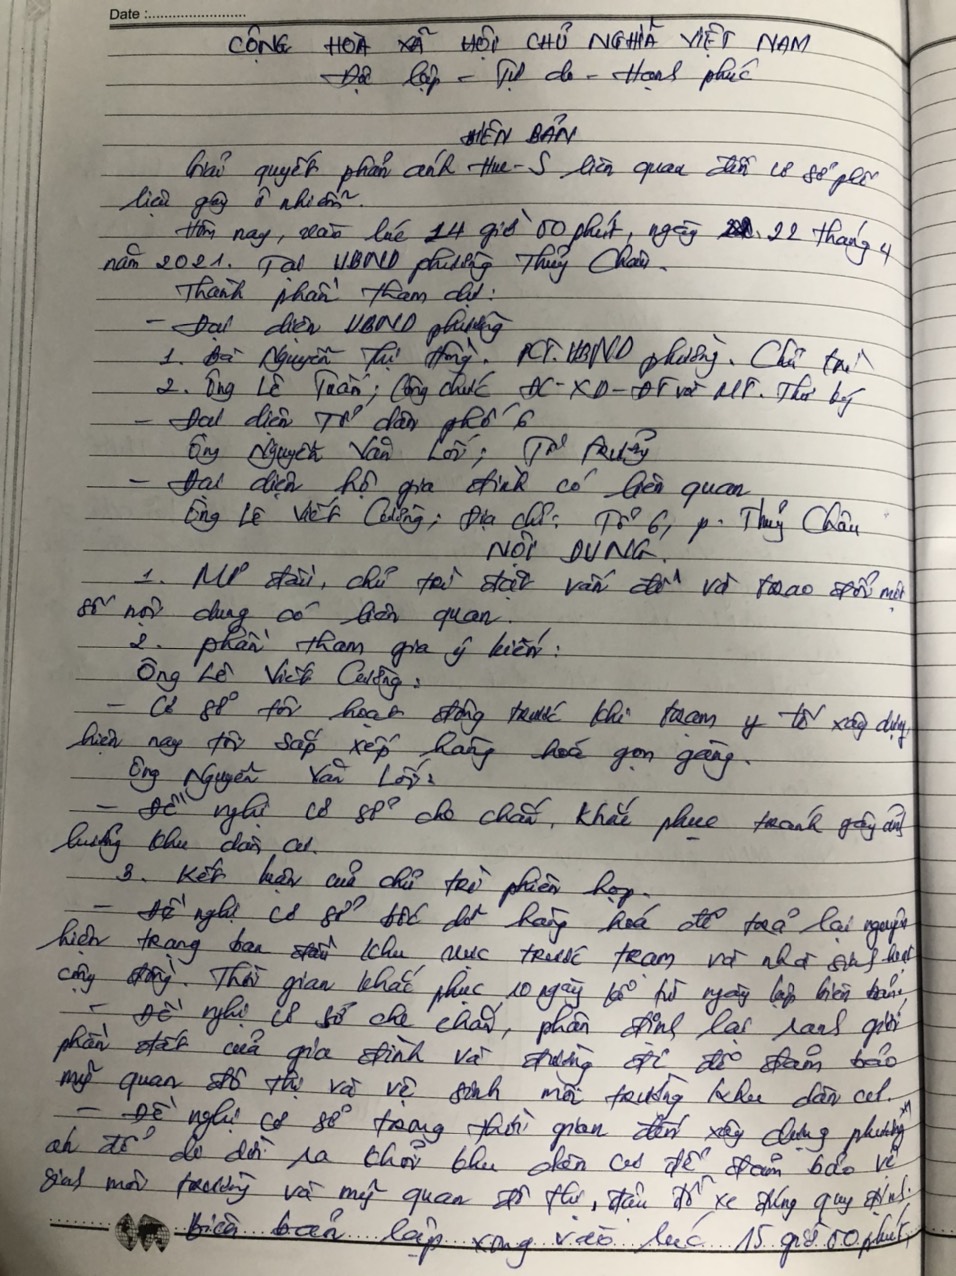 Date :
CỘNG HOÀ XÃ HỘI CHỦ NGHĨA VIỆT NAM
Độc lập - Tự do - Hạnh phúc
BIÊN BẢN
Giải quyết phản ánh Hue-S liên quan đến cơ sở phế
liệu gây ô nhiễm.
Hôm nay, vào lúc 14 giờ 00 phút, ngày 22 tháng 4
năm 2021. Tại UBND phường Thuỷ Châu.
Thành phần tham dự:
- Đại diện UBND phường
1. Bà Nguyễn Thị Hồng. PCT.UBND phường. Chủ trì
2. Ông Lê Tuấn; Công chức ĐC-XD-ĐT và MT. Thư ký
- Đại diện Tổ dân phố 6
Ông Nguyễn Văn Lợi; Tổ trưởng
- Đại diện hộ gia đình có liên quan
Ông Lê Viết Cường; Địa chỉ: Tổ 6, p. Thuỷ Châu
NỘI DUNG.
1. Mở đầu, chủ trì đặt vấn đề và trao đổi một
số nội dung có liên quan.
2. phần tham gia ý kiến:
Ông Lê Viết Cường:
- Cơ sở tôi hoạt động trước khi trạm y tế xây dựng,
hiện nay tôi sắp xếp hàng hoá gọn gàng.
Ông Nguyễn Văn Lợi:
- Đề nghị cơ sở che chắn, khắc phục tránh gây ảnh
hưởng khu dân cư.
3. Kết luận của chủ trì phiên họp.
- Đề nghị cơ sở bốc dỡ hàng hoá để trả lại nguyên
hiện trạng ban đầu khu vực trước trạm và nhà sinh hoạt
cộng đồng. Thời gian khắc phục 10 ngày kể từ ngày lập biên bản,
- Đề nghị cơ sở che chắn, phân định lại ranh giới
phần đất của gia đình và đường đi để đảm bảo
mỹ quan đô thị và vệ sinh môi trường khu dân cư.
- Đề nghị cơ sở trong thời gian đến xây dựng phương
án để di dời ra khỏi khu dân cư để đảm bảo vệ
sinh môi trường và mỹ quan đô thị, đậu đỗ xe đúng quy định.
Biên bản lập xong vào lúc 15 giờ 00 phút,